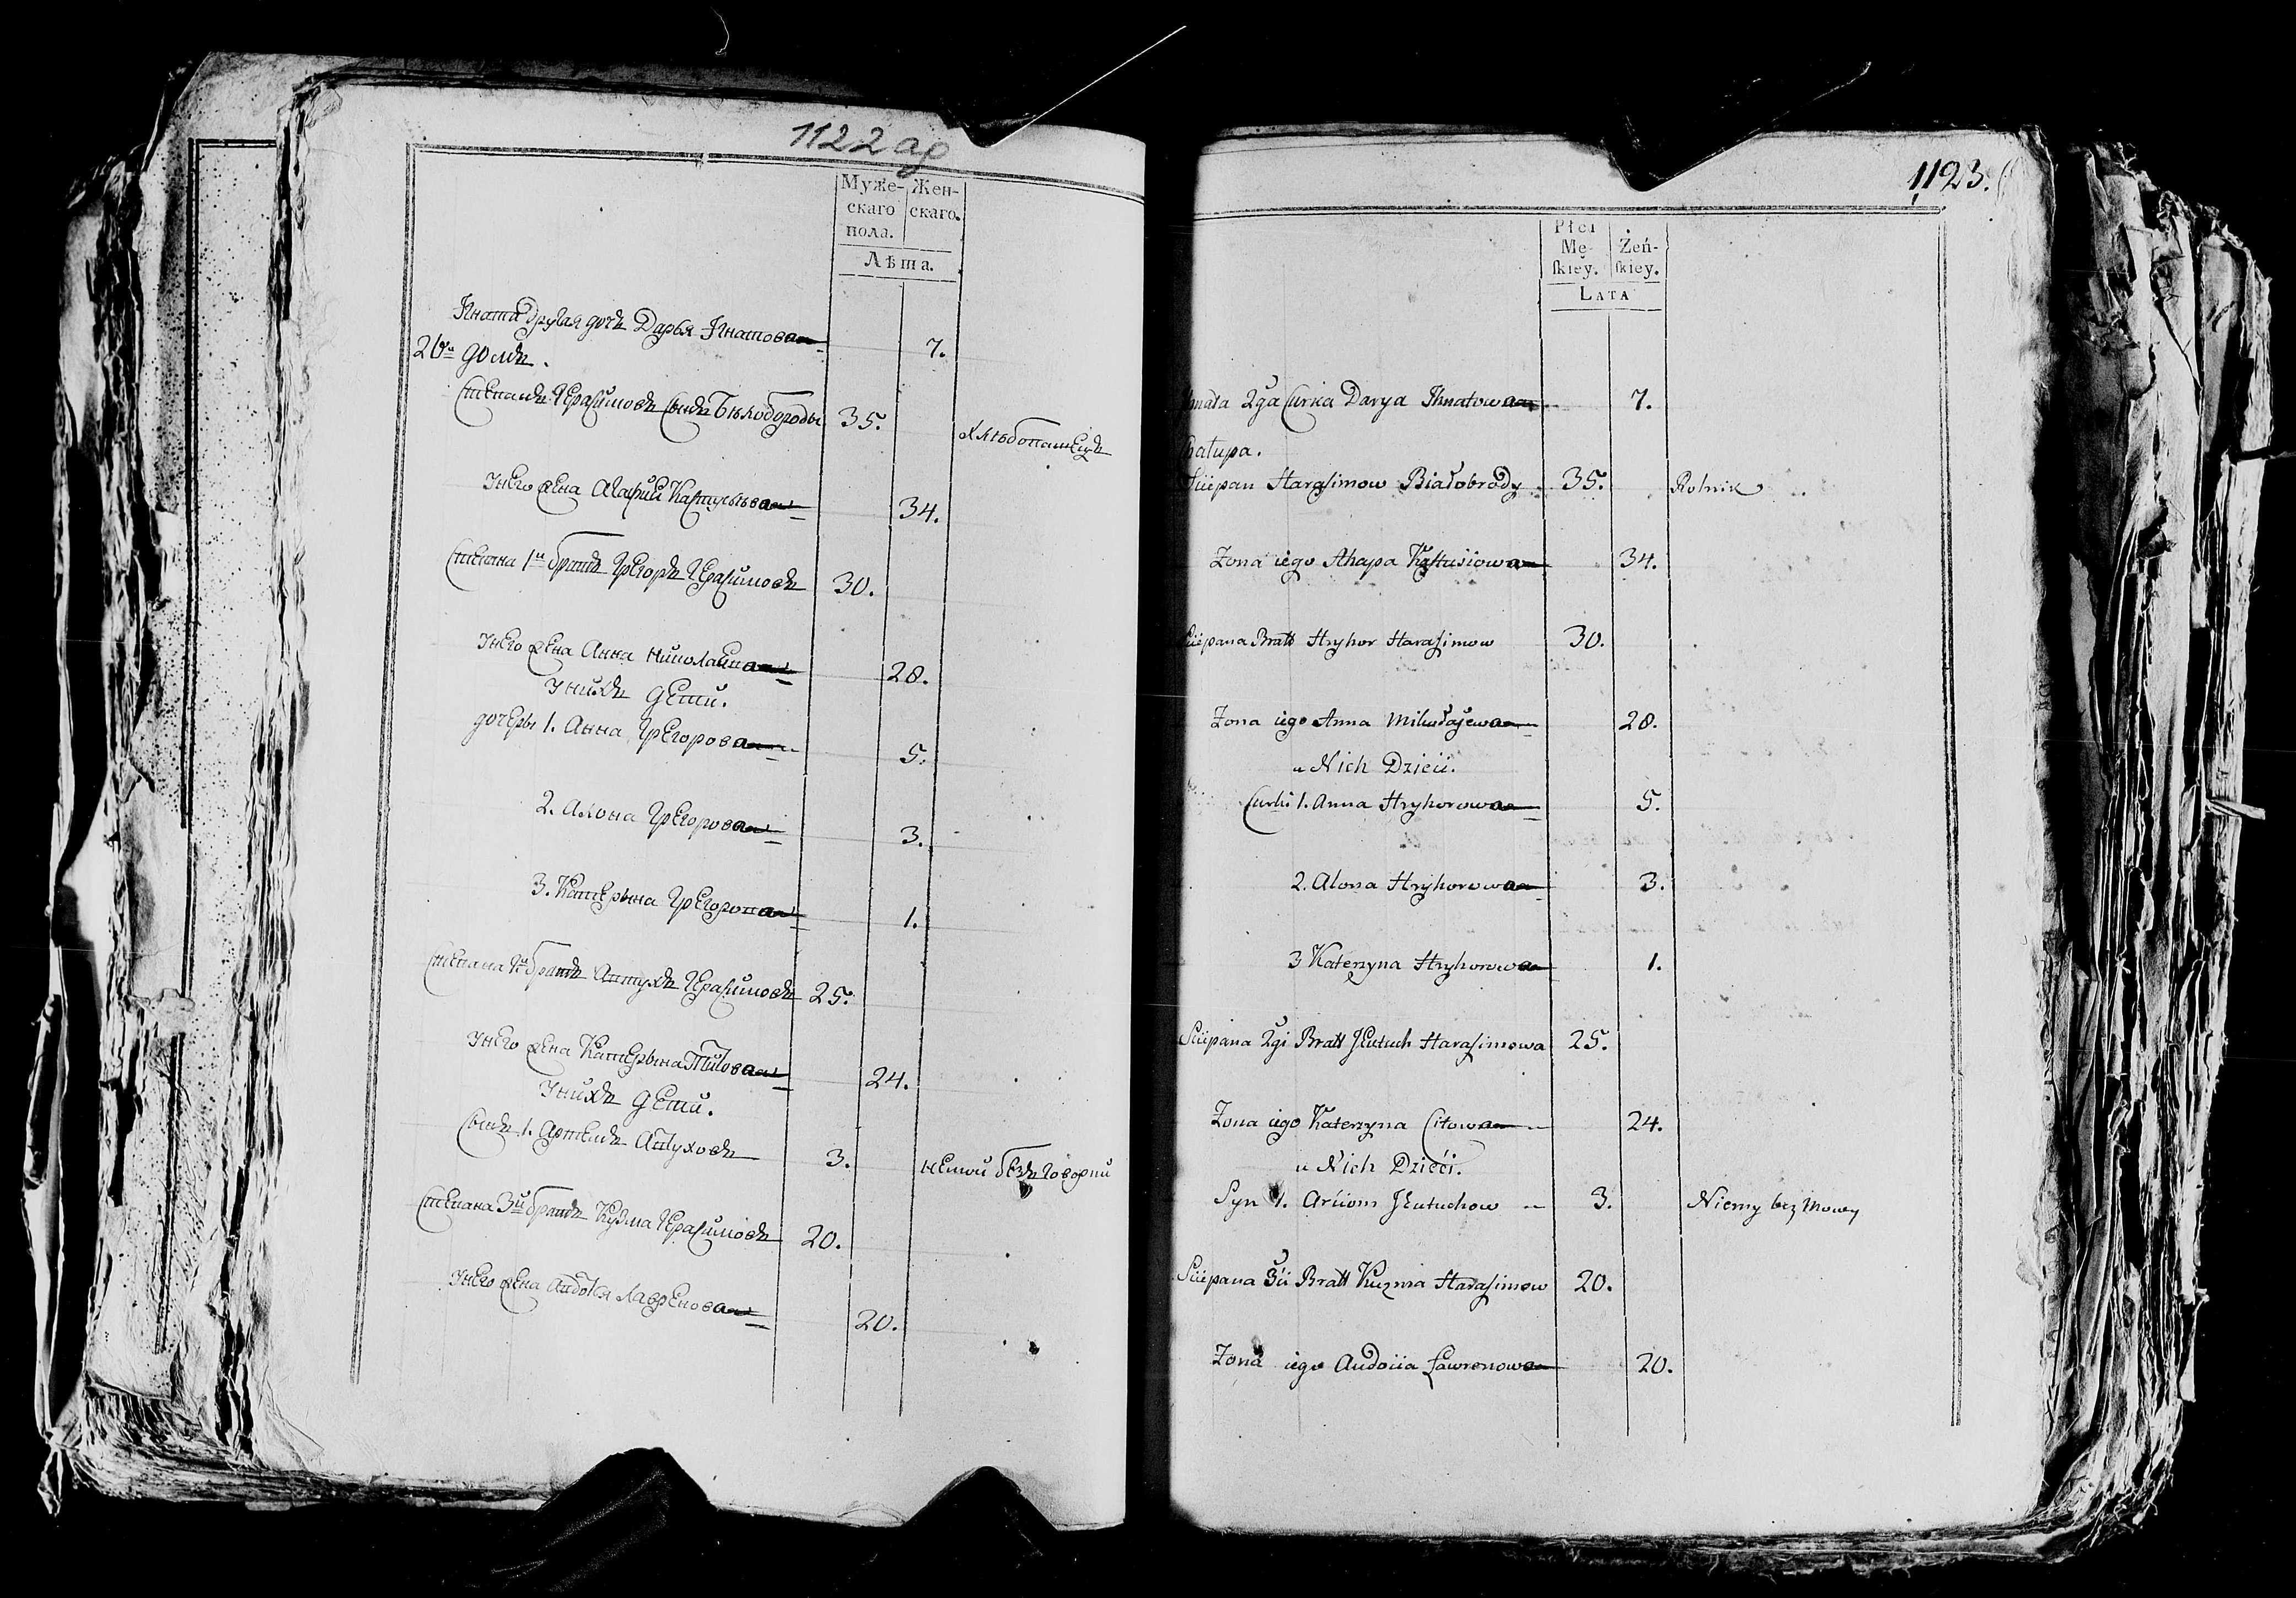 1122 
Муже- Жен-
скаго скаго.
пола.
Лѣта.
Игната другая дочь Дарья Игнатова 7.
2 домъ.
Степанъ Герасимовъ сынъ Бѣлоброды 35. хлѣбопашецъ
У него жена Агафия 34.
Степана 1й братъ Грегоръ Герасимовъ 30.
У него жена Анна Николаева 28.
У нихъ дети.
дочеры 1. Анна Грегорова 5.
2. Алона Грегорова 3.
3. Катерына Грегорова 1.
Степана 2й братъ Аптухъ Герасимовъ 25.
У него жена Катерына Титова 24.
У нихъ дети.
Сынъ 1. Артемъ Аптуховъ 3. немой безъ говорки
Степана 3й братъ Кузма Герасимовъ 20.
У него жена Авдотя Лавренова 20.
1123.
Płci
Mę- Żeń-
skiey. skiey.
LATA
Ihnata 2ga Curka Darya Ihnatowa 7.
Chałupa.
Sciepan Harasimow Białobrody 35. Rolnik
Zona iego Ahapa 34.
Sciepana Bratt Hryhor Harasimow 30.
Zona iego Anna Mikołajewa 28.
u Nich Dzieci.
Curki 1. Anna Hryhorowa 5.
2. Alona Hryhorowa 3.
3 Katerzyna Hryhorowa 1.
Sciepana 2gi Bratt Harasimowa 25.
Zona iego Katerzyna Citowa 24.
u Nich Dzieci.
Syn 1. Arciom 3. Niemy bez Mowy
Sciepana 3ci Bratt Kuzma Harasimow 20.
Zona iego Audocia Ławrenowa 20.